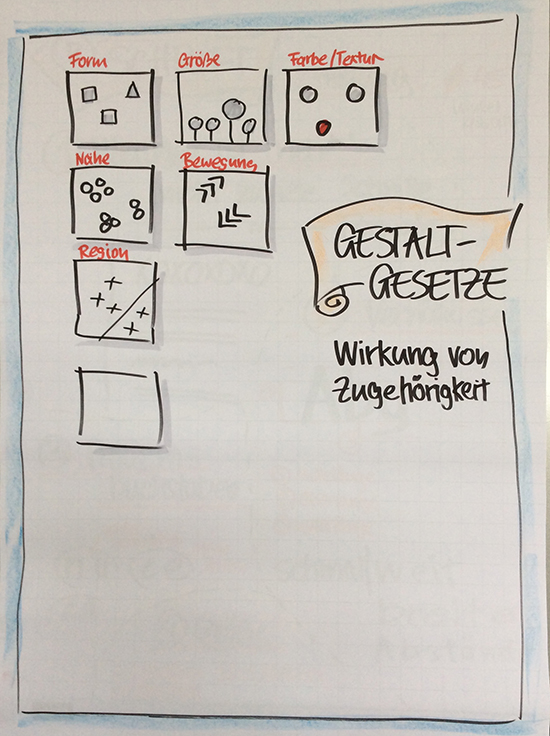 Form
Größe
Farbe/Textur
Nähe
Bewegung
Region
GESTALT-
GESETZE
Wirkung von
Zugehörigkeit